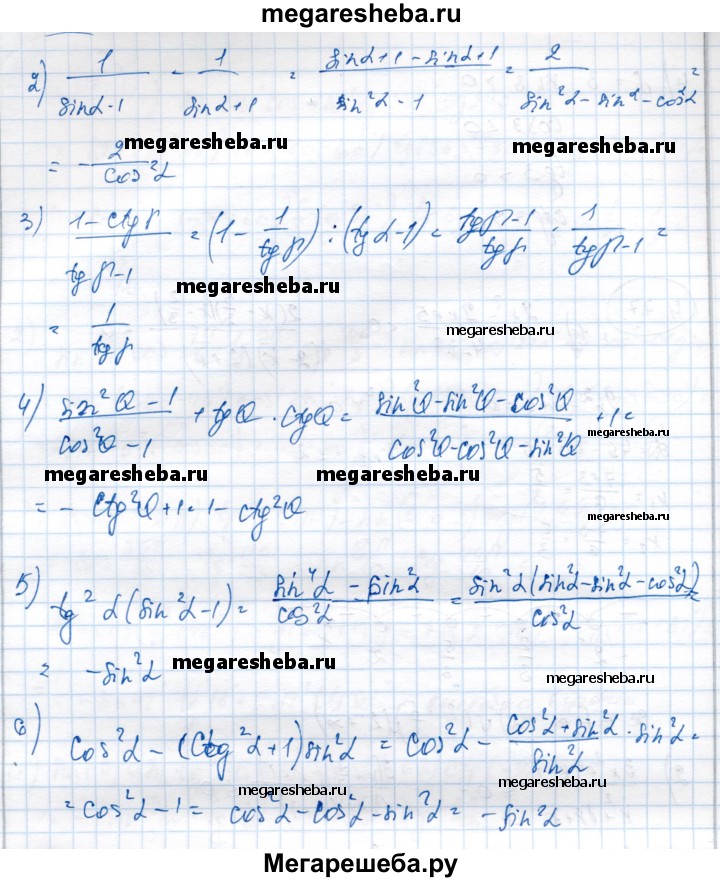 megaresheba.ru
2) 1/(sinα-1) - 1/(sinα+1) = (sinα+1-sinα+1)/(sin²α-1) = 2/(sin²α-sin²α-cos²α) =
megaresheba.ru megaresheba.ru
= -2/cos²α
3) (1-ctgβ)/(tgβ-1) = (1-1/tgβ):(tgα-1) = (tgβ-1)/tgβ · 1/(tgβ-1) =
megaresheba.ru
= 1/tgβ
megaresheba.ru
4) (sin²Q-1)/(cos²Q-1) + tgQ·ctgQ = (sin²Q-sin²Q-cos²Q)/(cos²Q-cos²Q-sin²Q) + 1 =
megaresheba.ru
megaresheba.ru megaresheba.ru
= -ctg²Q+1=1-ctg²Q
5) tg²α(sin²α-1) = (sin⁴α-sin²α)/cos²α = (sin²α(sin²α-sin²α-cos²α))/cos²α
= -sin²α
megaresheba.ru
megaresheba.ru
6) cos²α-(ctg²α+1)sin²α = cos²α - (cos²α+sin²α)/sin²α · sin²α =
megaresheba.ru megaresheba.ru
= cos²α-1 = cos²α-cos²α-sin²α = -sin²α
megaresheba.ru
Мегарешеба.ру